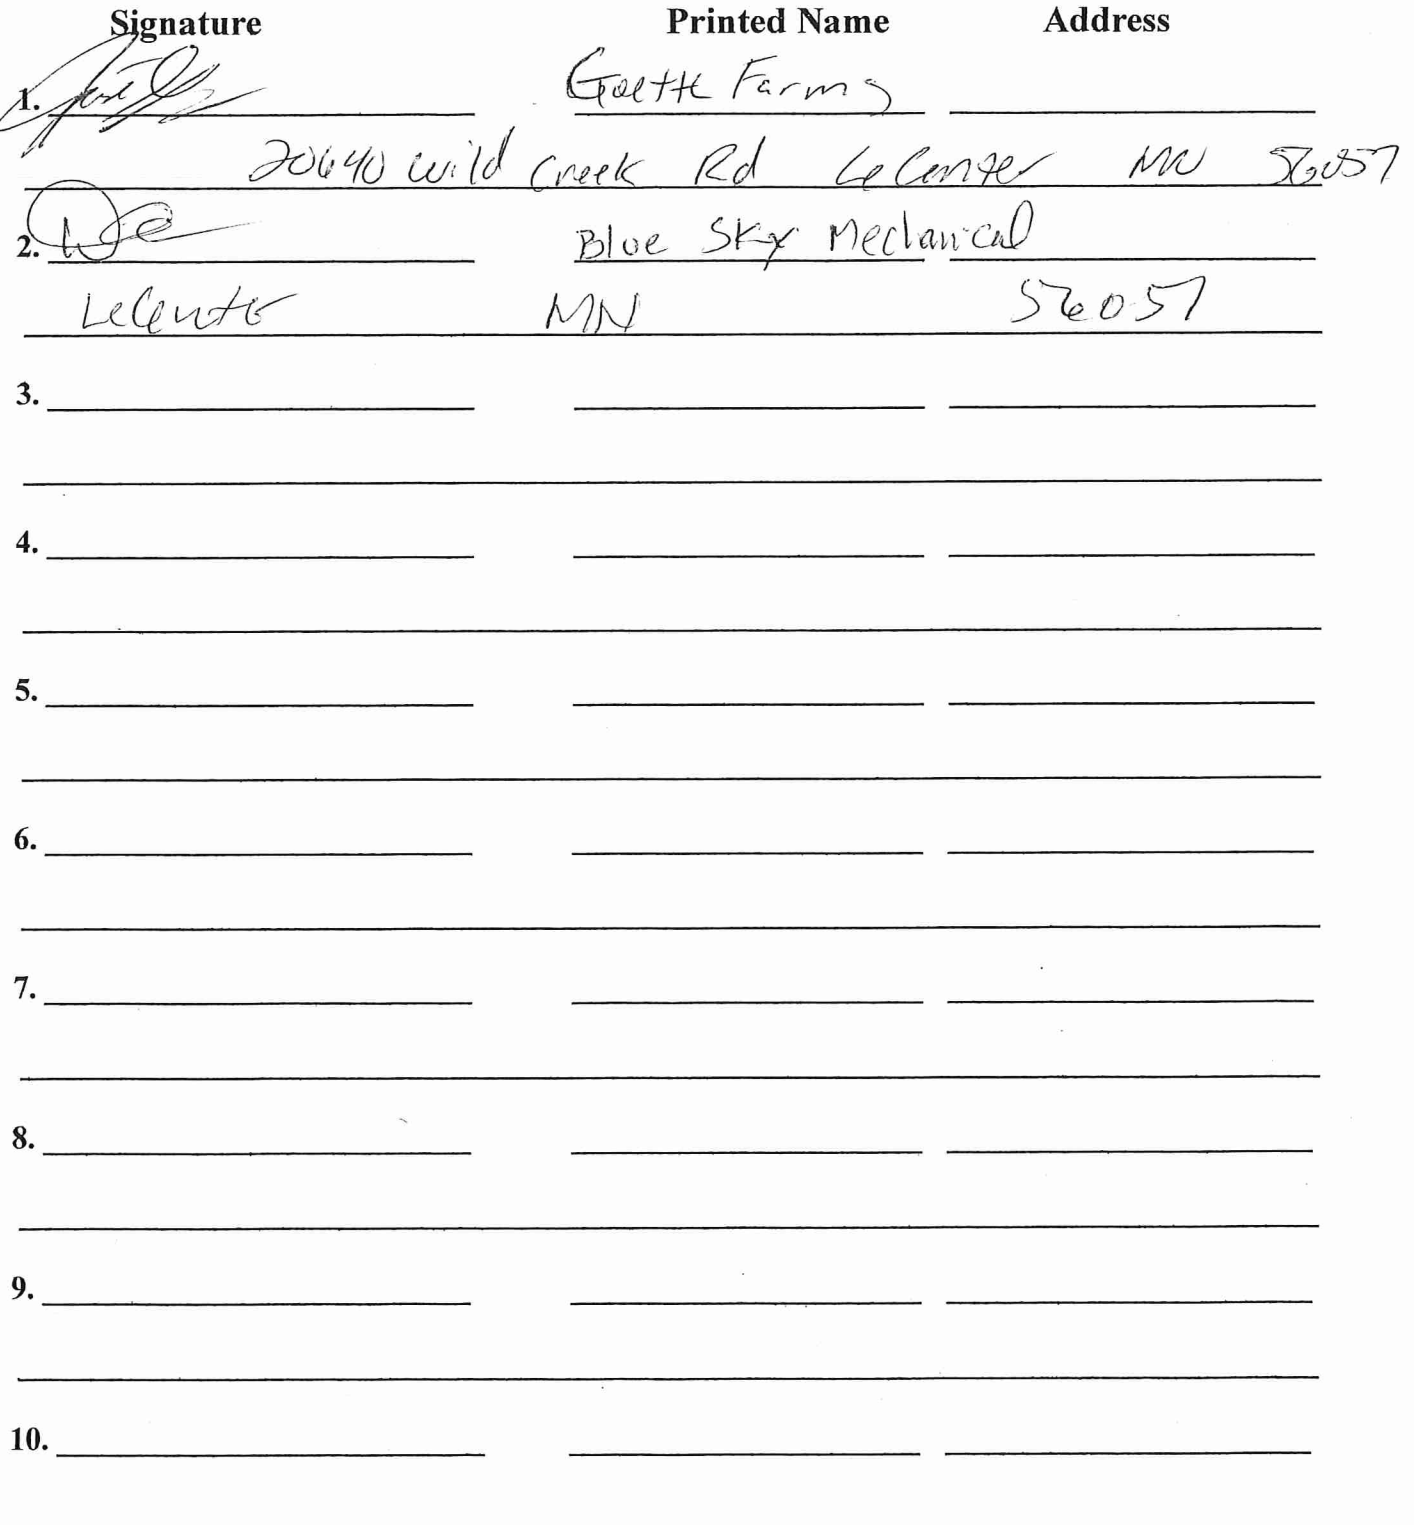 Signature Printed Name Address
1. Goette Farms
20640 Wild Creek Rd Le Center MN 56057
2. Blue Sky Mechanical
LeCenter MN 56057
3.
4.
5.
6.
7.
8.
9.
10.